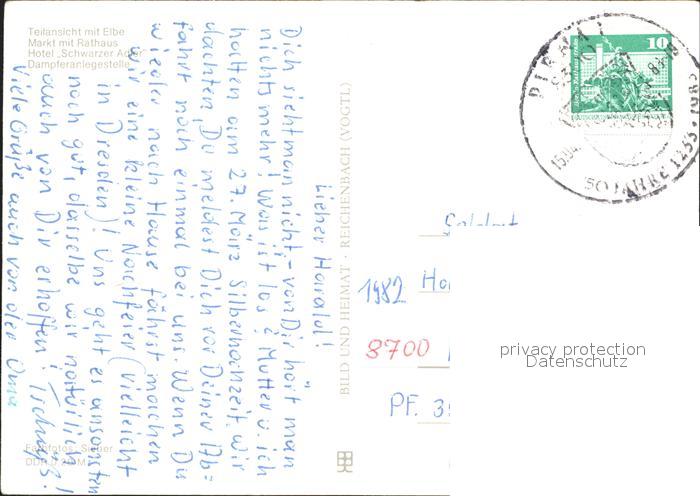 Teilansicht mit Elbe
Markt mit Rathaus
Hotel „Schwarzer Adler"
Dampferanlegestelle
Lieber Harald!
Dich sieht man nicht - von Dir hört man
nichts mehr! Was ist los? Mutter u. ich
hatten am 27. März Silberhochzeit, wir
dachten, Du meldest Dich vor Deiner Ab=
fahrt noch einmal bei uns. Wenn Du
wieder nach Hause fährst, machen
wir eine kleine Nachfeier (vielleicht
in Dresden)! Uns geht es ansonsten
noch gut, dasselbe wir natürlich
auch von Dir erhoffen! Tschüß!
Viele Grüße auch von der Oma
Farbfotos: Sieber
BILD UND HEIMAT · REICHENBACH (VOGTL)
10
PIRNA 1
50 JAHRE 1233 · 1983
Soldat
1982
8700
PF.
privacy protection
Datenschutz